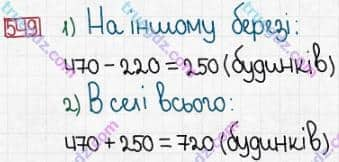 549 1) На іншому березі:
470 - 220 = 250 (будинків)
2) В селі всього:
470 + 250 = 720 (будинків)